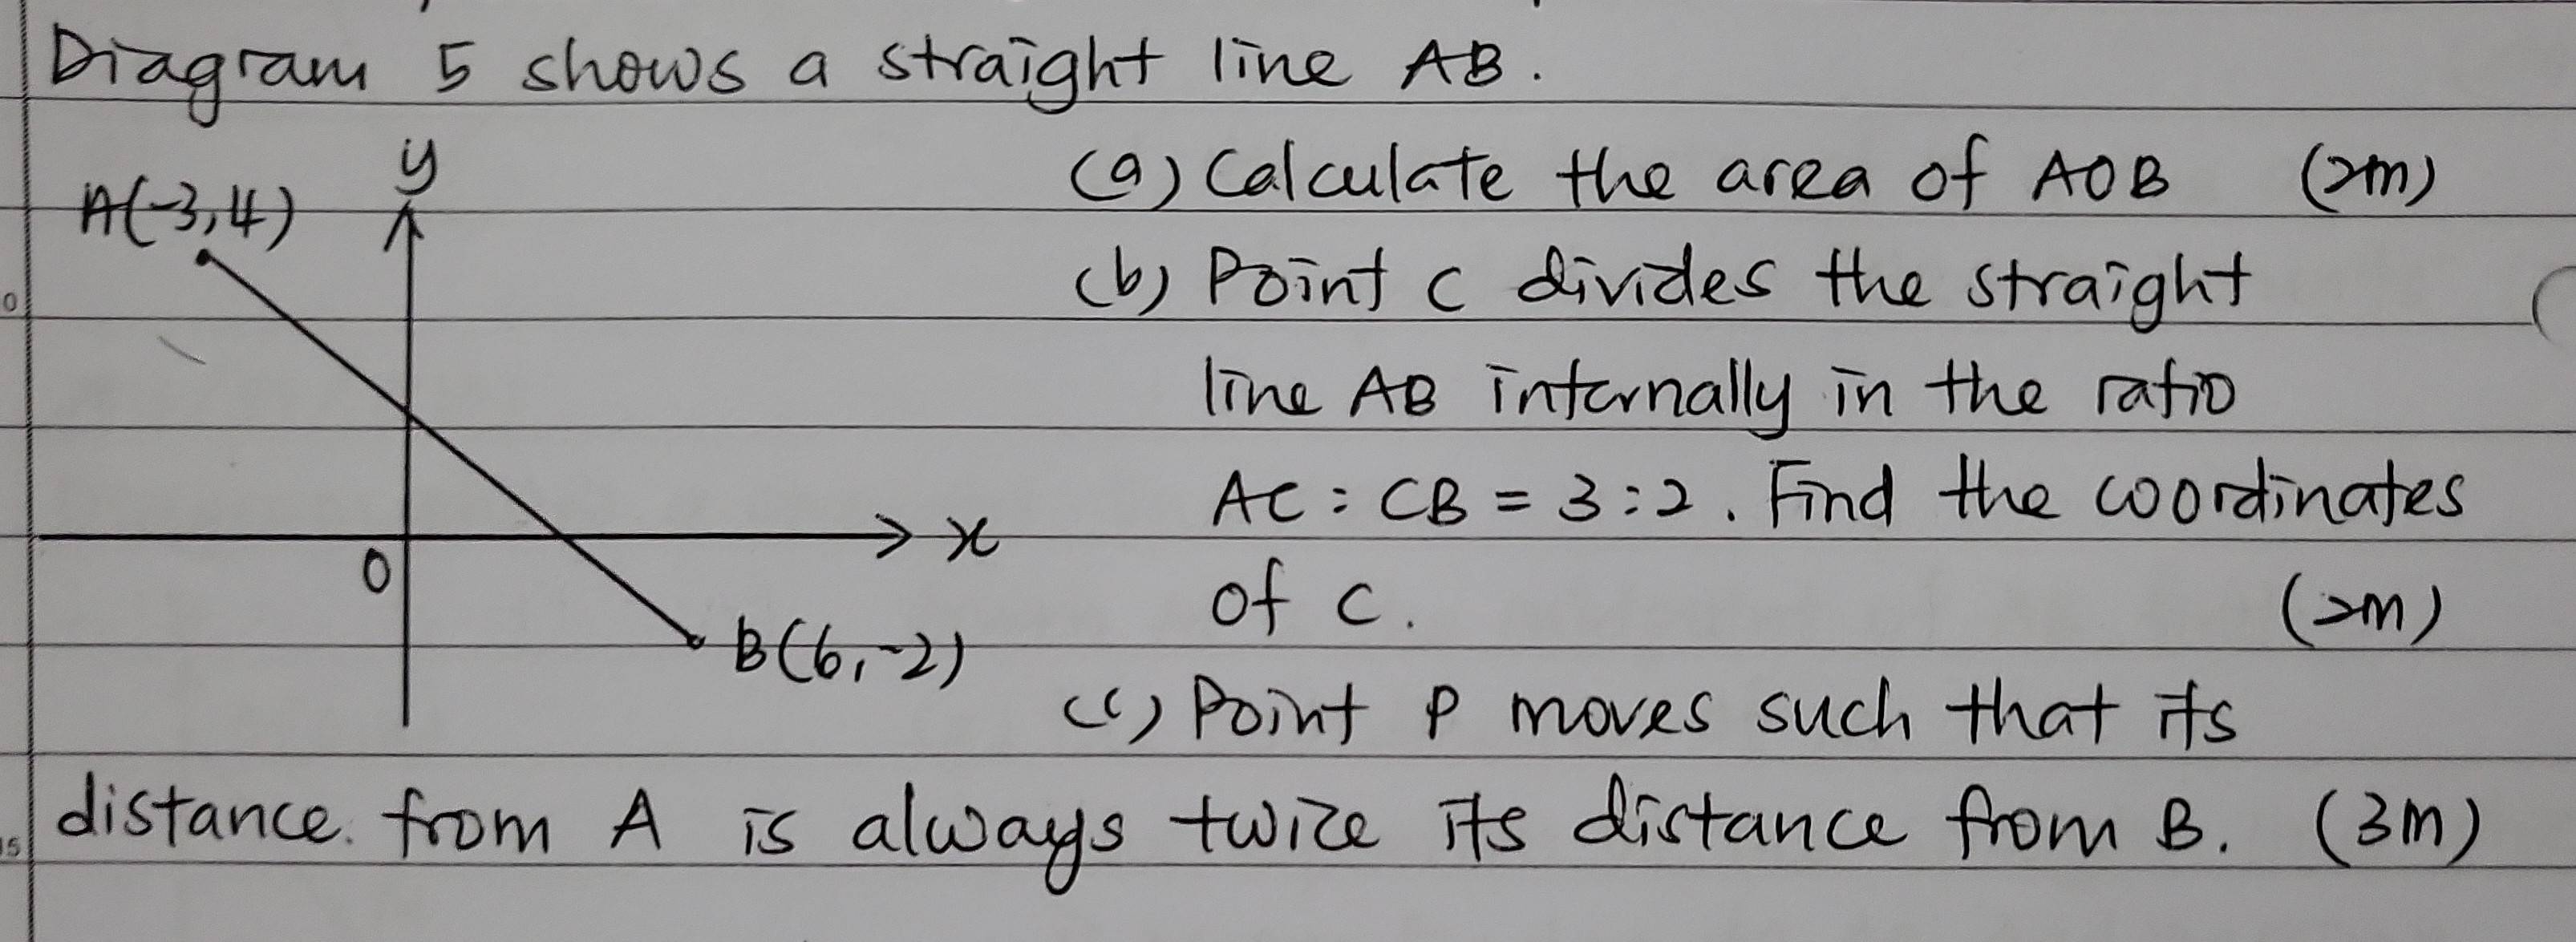 Diagram 5 shows a straight line AB.
y
A(-3,4)
x
0
B(6,-2)
(a) Calculate the area of AOB (2m)
(b) Point C divides the straight
line AB internally in the ratio
AC : CB = 3:2. Find the coordinates
of C. (2m)
(c) Point P moves such that its
distance from A is always twice its distance from B. (3m)